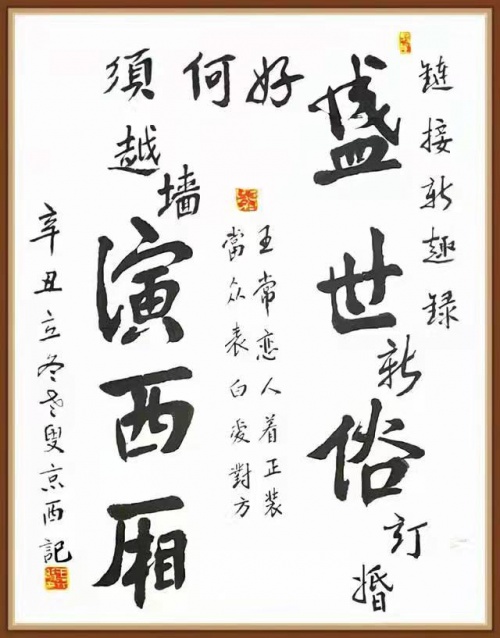 鏈接新趣録
盛世新俗訂婚
好何須越墙
演西厢
王常恋人着正装
當众表白爱對方
辛丑立冬老叟京西記